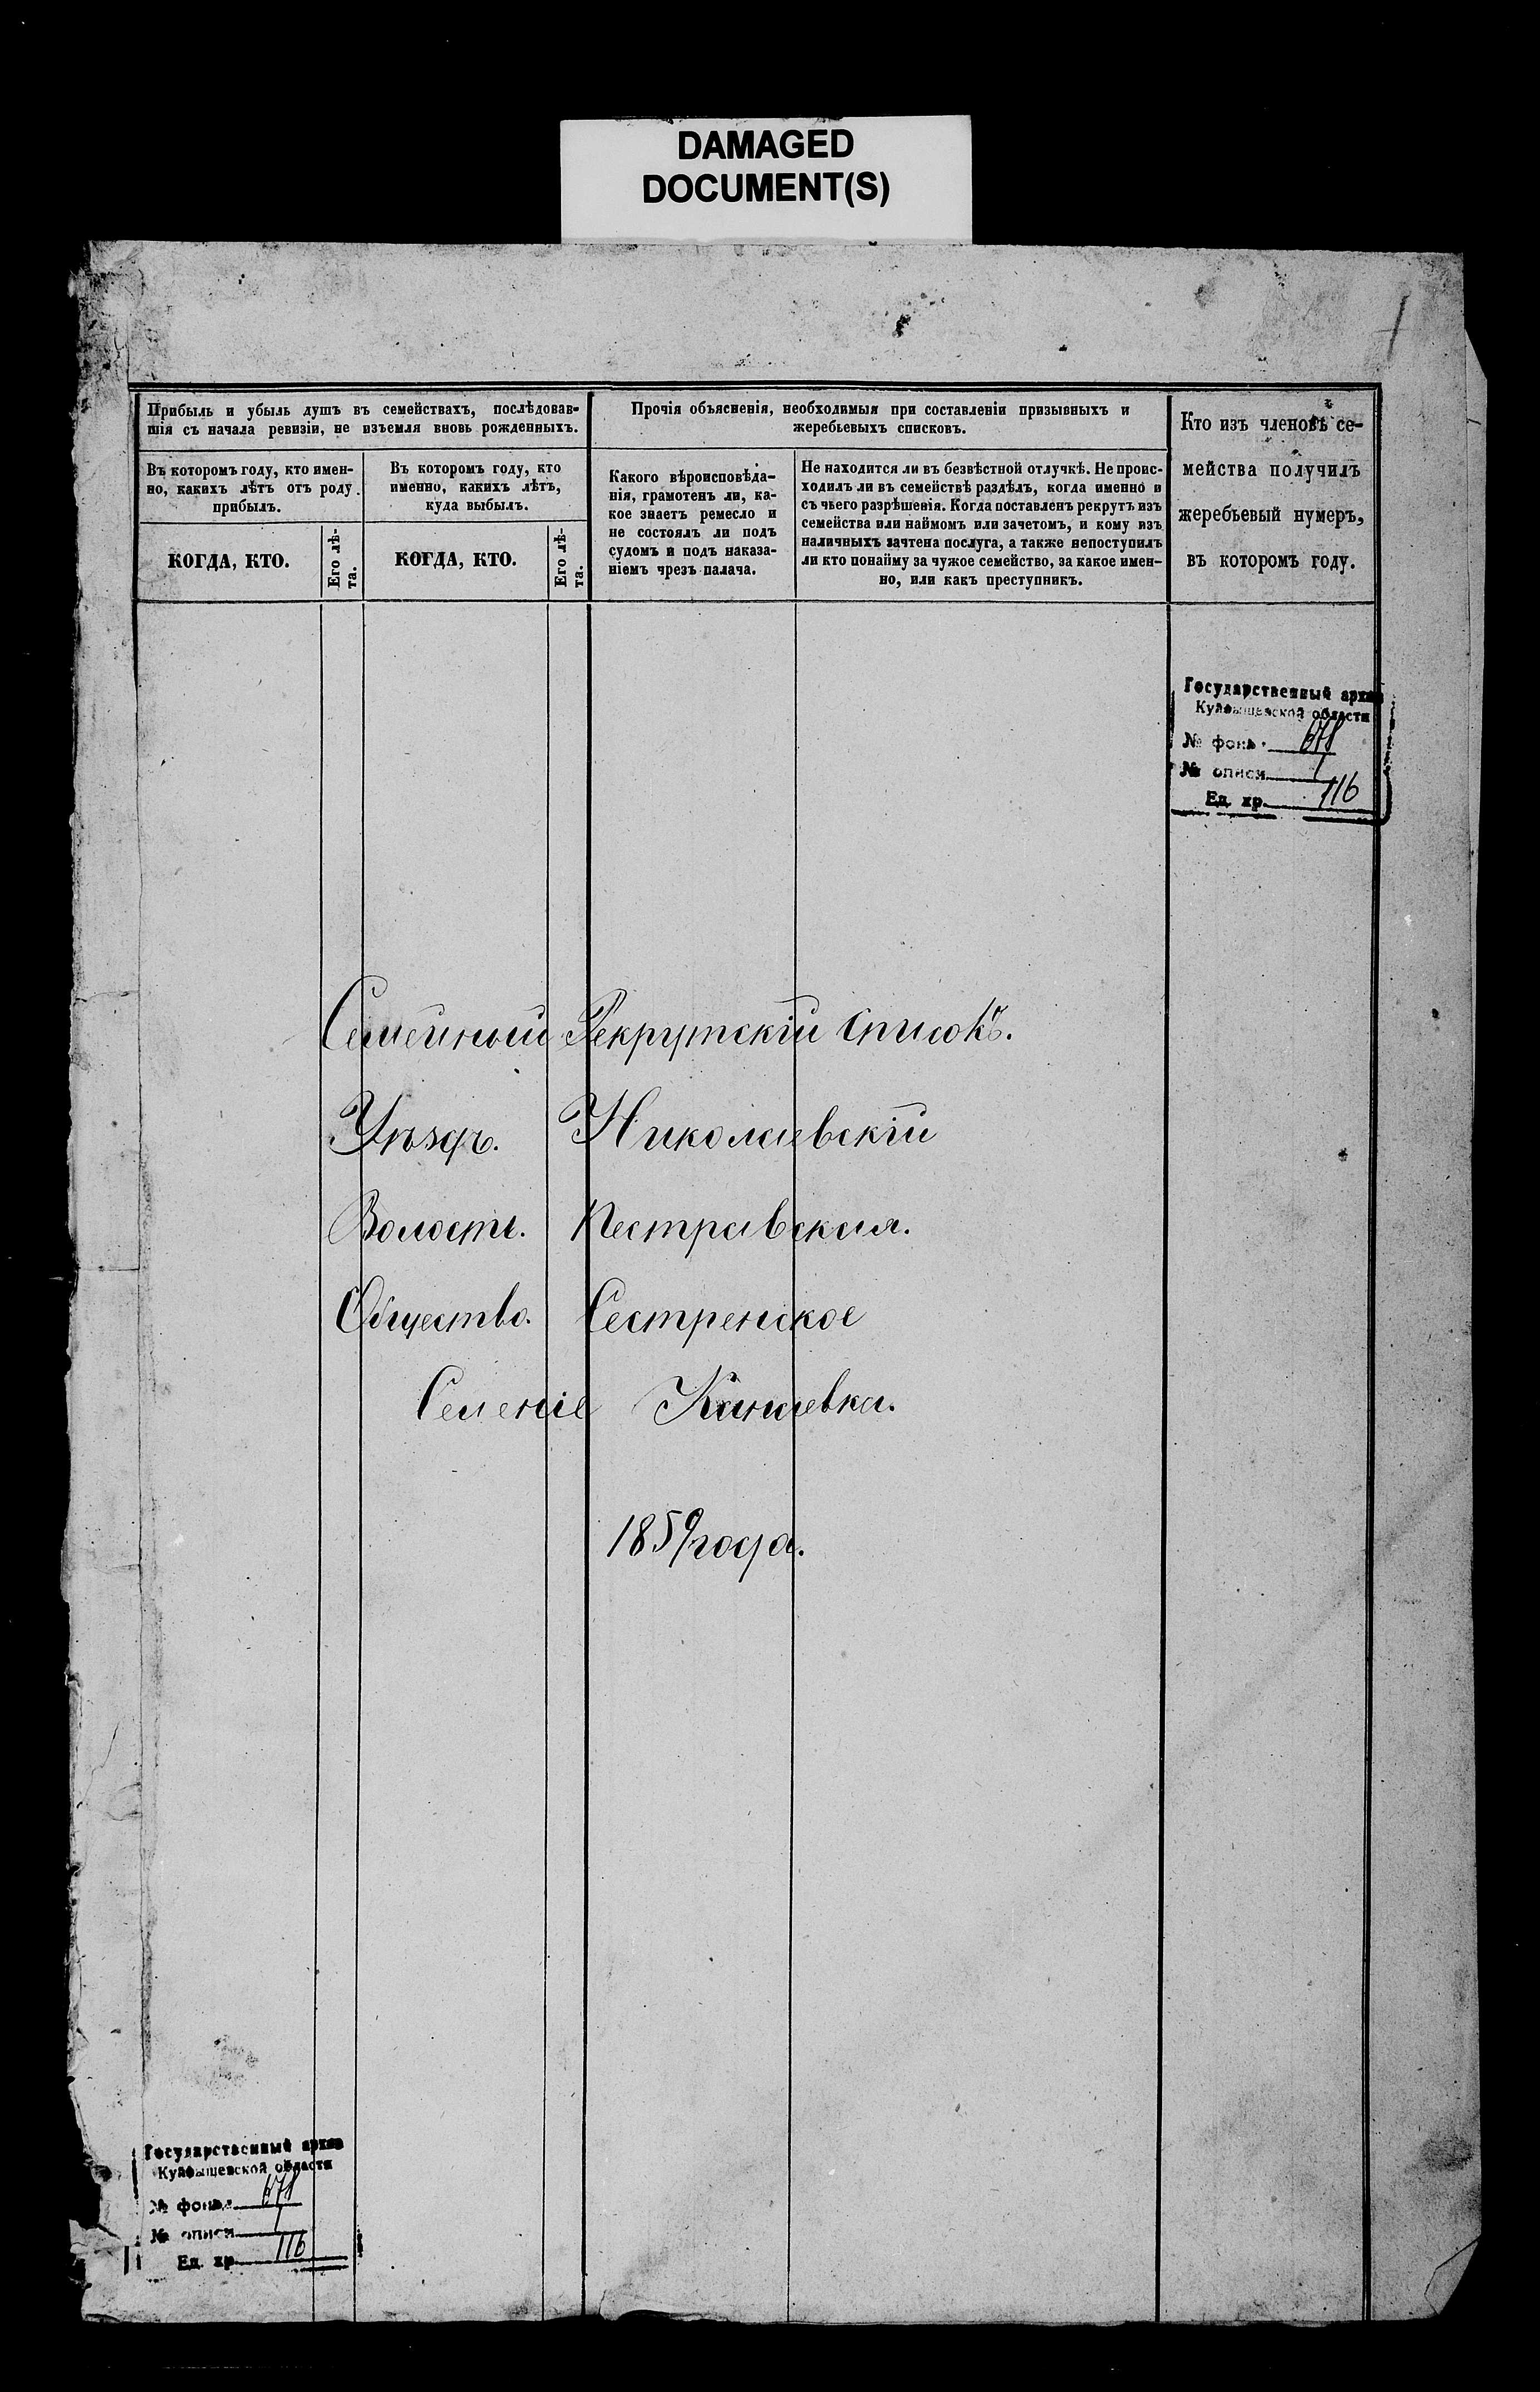 DAMAGED
DOCUMENT(S)
1
Прибыль и убыль душъ въ семействахъ, послѣдовав-
шія съ начала ревизіи, не изъемля вновь рожденныхъ.
Въ которомъ году, кто имен-
но, какихъ лѣтъ отъ роду
прибылъ.
КОГДА, КТО.
Его лѣ-
та.
Въ которомъ году, кто
именно, какихъ лѣтъ,
куда выбылъ.
КОГДА, КТО.
Его лѣ-
та.
Прочія объясненія, необходимыя при составленіи призывныхъ и
жеребьевыхъ списковъ.
Какого вѣроисповѣда-
нія, грамотенъ ли, ка-
кое знаетъ ремесло и
не состоялъ ли подъ
судомъ и подъ наказа-
ніемъ чрезъ палача.
Не находится ли въ безвѣстной отлучкѣ. Не проис-
ходилъ ли въ семействѣ раздѣлъ, когда именно и
съ чьего разрѣшенія. Когда поставленъ рекрутъ изъ
семейства или наймомъ или зачетомъ, и кому изъ
наличныхъ зачтена послуга, а также непоступилъ
ли кто понайму за чужое семейство, за какое имен-
но, или какъ преступникъ.
Кто изъ членовъ се-
мейства получилъ
жеребьевый нумеръ,
въ которомъ году.
Государственный архив
Куйбышевской области
№ фонд 678
№ описи 1
Ед. хр. 116
Семейный Рекрутскій списокъ.
Уѣздъ. Николаевскій
Волость. Пестравская.
Общество. Сестренское
Селеніе Канаевка.
1859 года.
Государственный архив
Куйбышевской области
№ фонд 678
№ описи 1
Ед. хр. 116